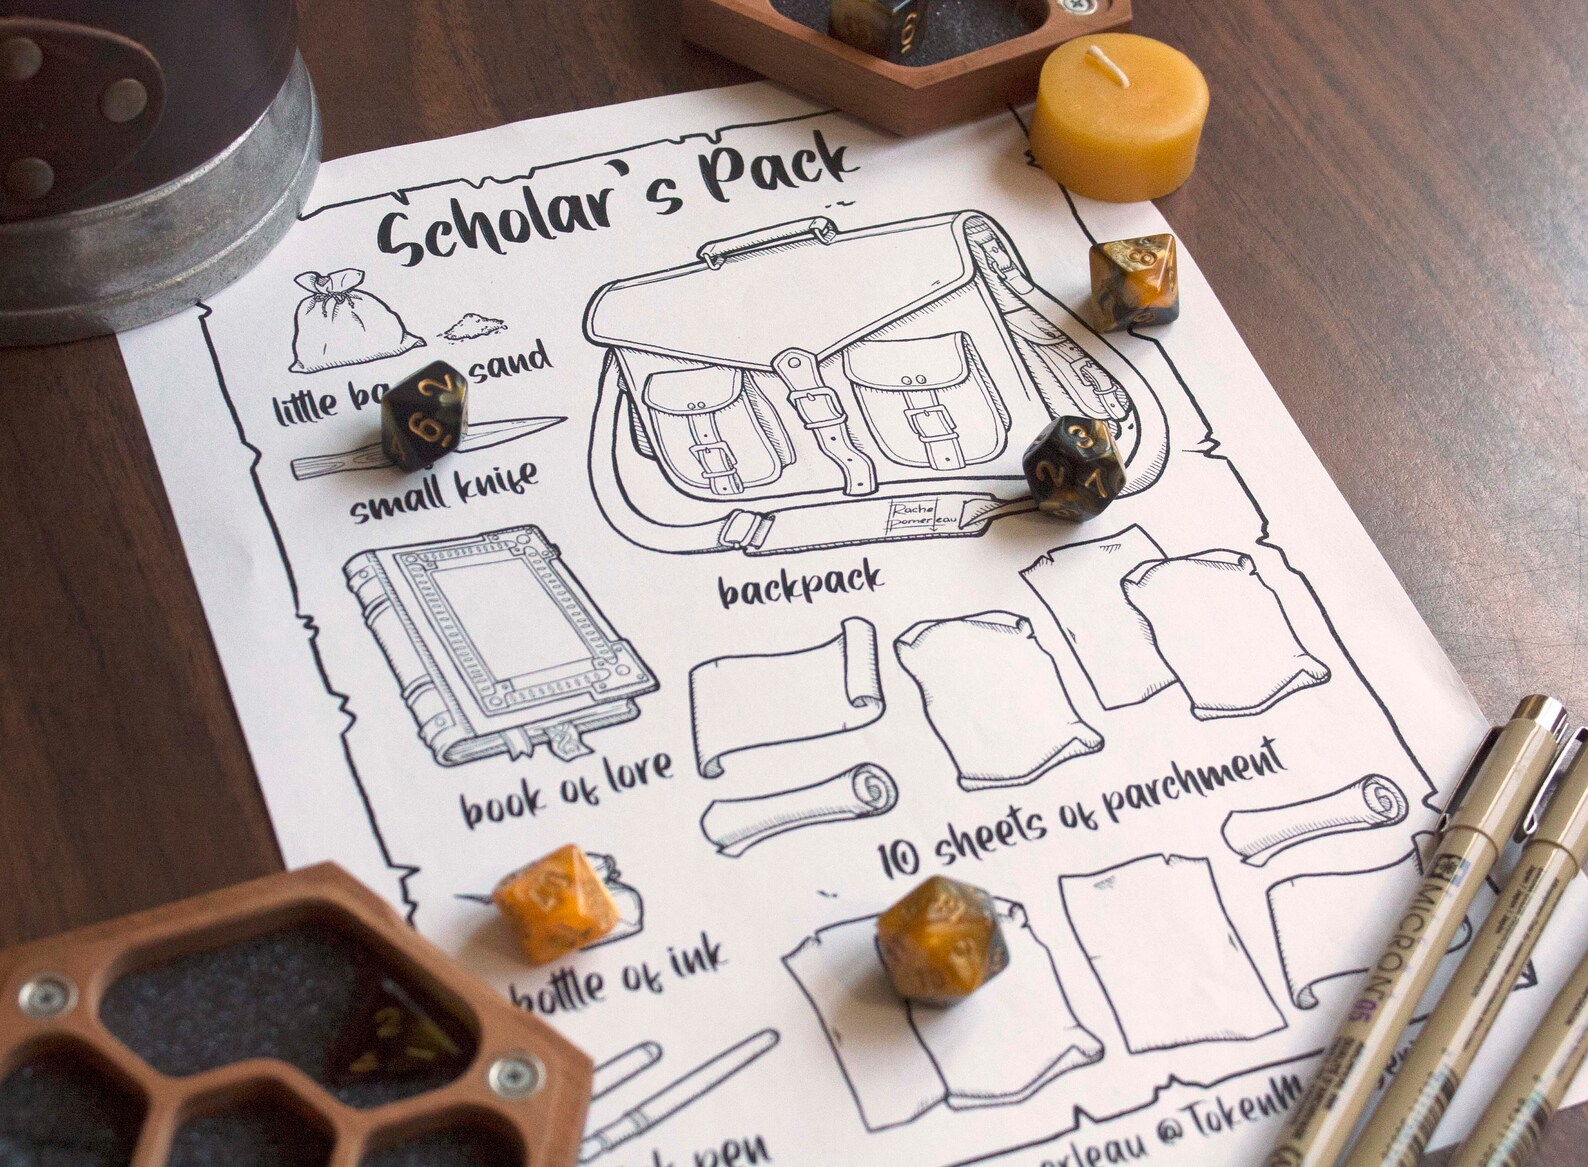 Scholar's Pack
little ba sand
small knife
Rachel
Pomerleau
backpack
book of lore
10 sheets of parchment
bottle of ink
pen
erleau @ TokenM
MICRON 05